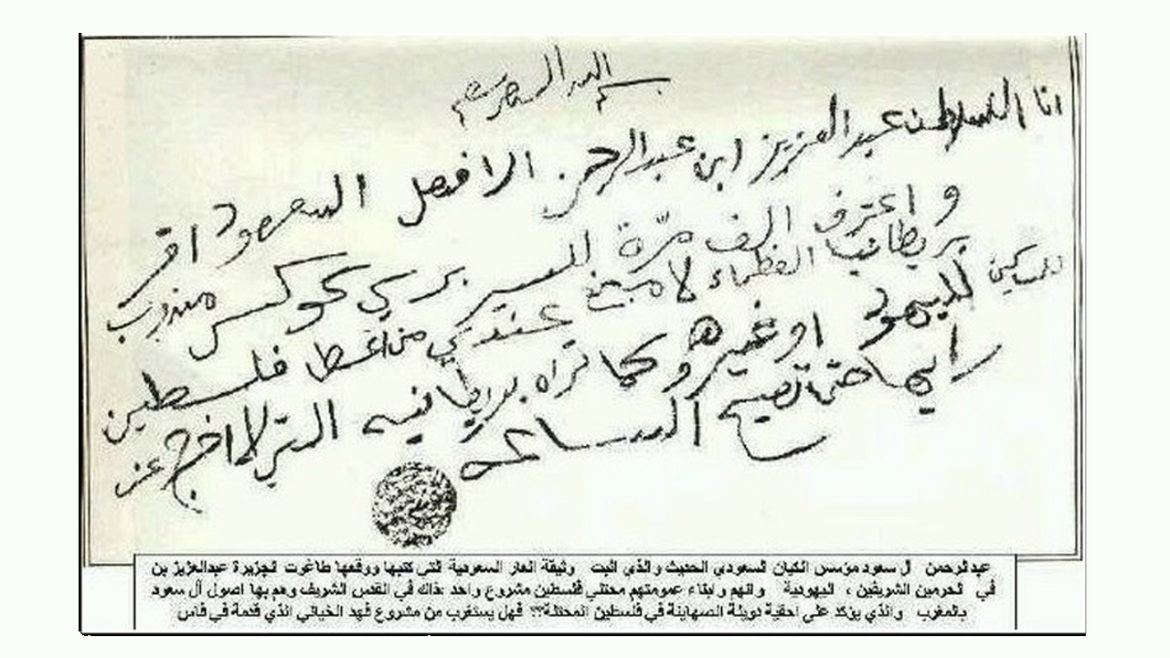 بسم الله الرحمن الرحيم
انا السلطان عبد العزيز ابن عبد الرحمن الافصل السعود اقر
و اعترف الف مرّة للسير برسي كوكس مندوب
بريطانيا العظماء لا مانع عندي من اعطا فلسطين للمساكين
لليهود او غيرهم وكما تراه بريطانيه التي لا اخرج عن
رايها حتى تصيح الساعه
عبدالرحمن آل سعود مؤسس الكيان السعودي الحديث والذي اثبت وثيقة العار السعودية التي كتبها ووقعها طاغوت الجزيرة عبدالعزيز بن
في الحرمين الشريفين ، اليهودية وانهم وابناء عمومتهم محتلي فلسطين مشروع واحد ،ذاك في القدس الشريف وهم بها اصول آل سعود
بالمغرب والذي يؤكد على احقية دويلة الصهاينة في فلسطين المحتلة؟؟ فهل يستغرب من مشروع فهد الخياني الذي قدمة في فاس